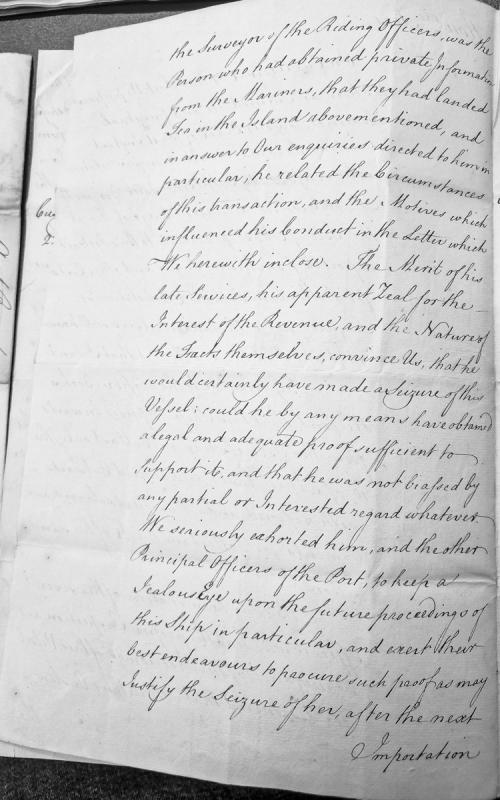 the Surveyor of the Riding Officers, was the
Person who had obtained private Information
from the Mariners, that they had landed
Tea in the Island abovementioned, and
in answer to Our enquiries directed to him in
particular, he related the Circumstances
of this transaction, and the Motives which
influenced his Conduct in the Letter which
We herewith inclose. The Merit of his
late Services, his apparent Zeal for the
Interest of the Revenue, and the Nature of
the Facts themselves, convince Us, that he
would certainly have made a Seizure of this
Vessel; could he by any means have obtained
a legal and adequate proof sufficient to
Support it, and that he was not biassed by
any partial or Interested regard whatever
We seriously exhorted him, and the other
Principal Officers of the Port, to keep a
Jealous Eye upon the future proceedings of
this Ship in particular, and exert their
best endeavours to procure such proof as may
Justify the Seizure of her, after the next
Importation